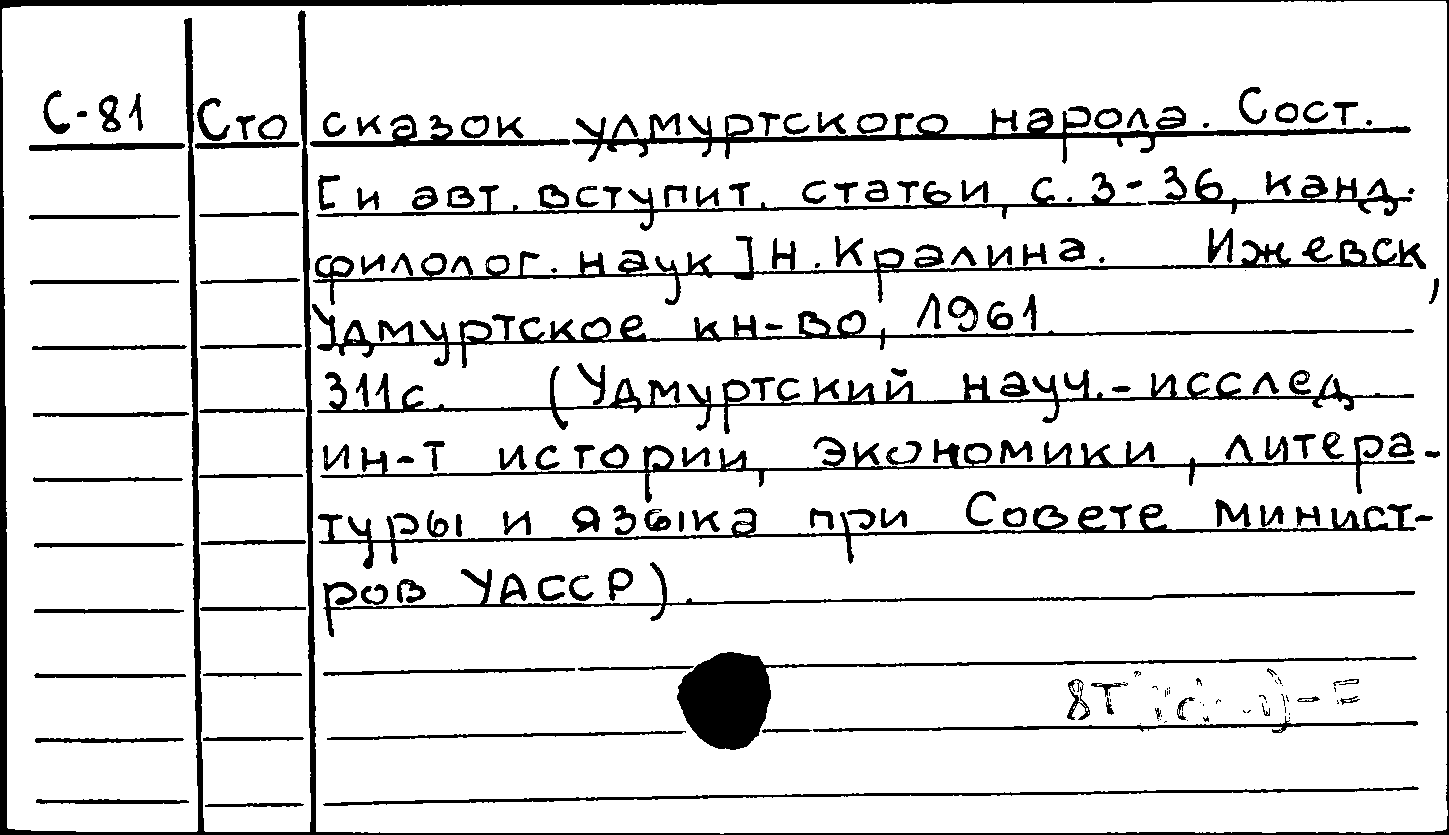 С-81 Сто сказок удмуртского народа. Сост.
[и авт. вступит. статьи, с. 3-36, канд.
филолог. наук] Н. Кралина. Ижевск,
Удмуртское кн-во, 1961
311с. (Удмуртский науч.-исслед.
ин-т истории, экономики, литера-
туры и языка при Совете минист-
ров УАССР).